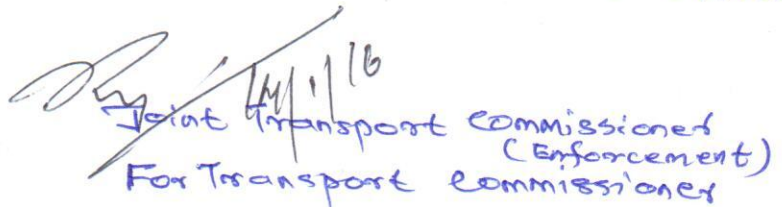 14/1/16
Joint Transport Commissioner
(Enforcement)
For Transport Commissioner